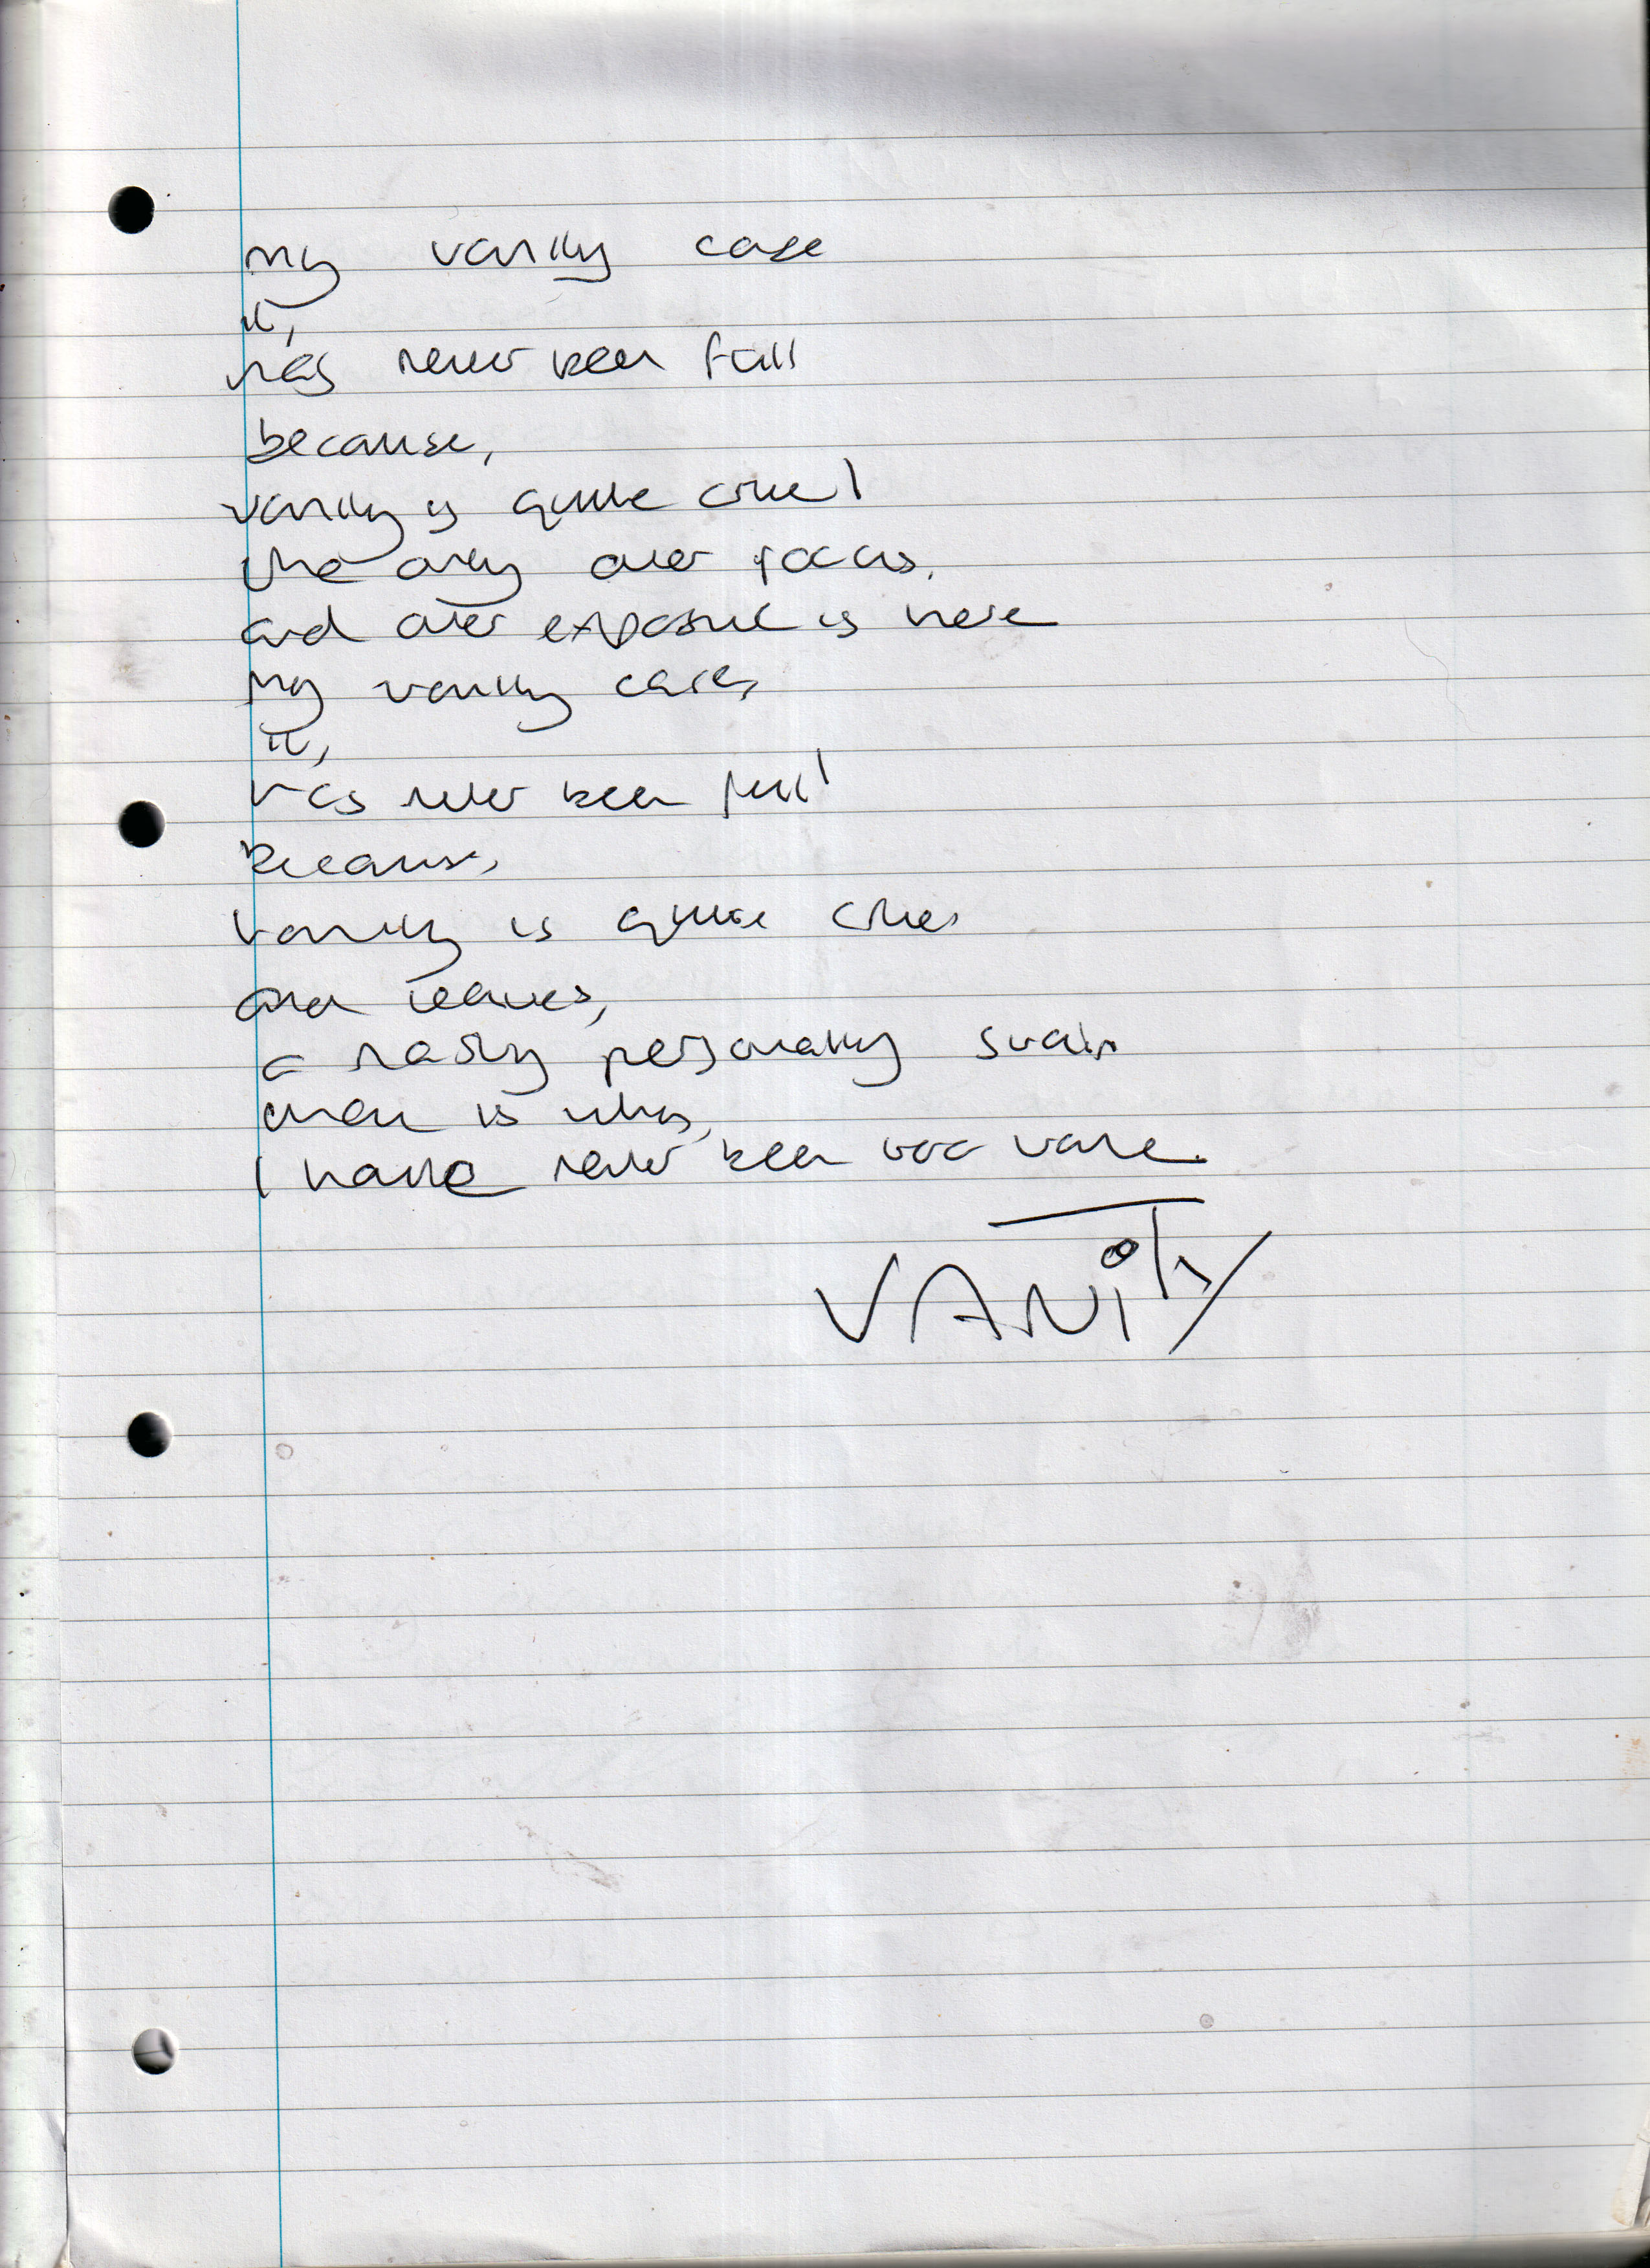 my vanity case
it,
has never been full
because,
vanity is quite cruel
the only over focus,
and over exposure is here
my vanity case,
it,
has never been full
because,
vanity is quite cruel
and leaves,
a nasty personality stain
that is why,
I have never been too vane.
VANiTy